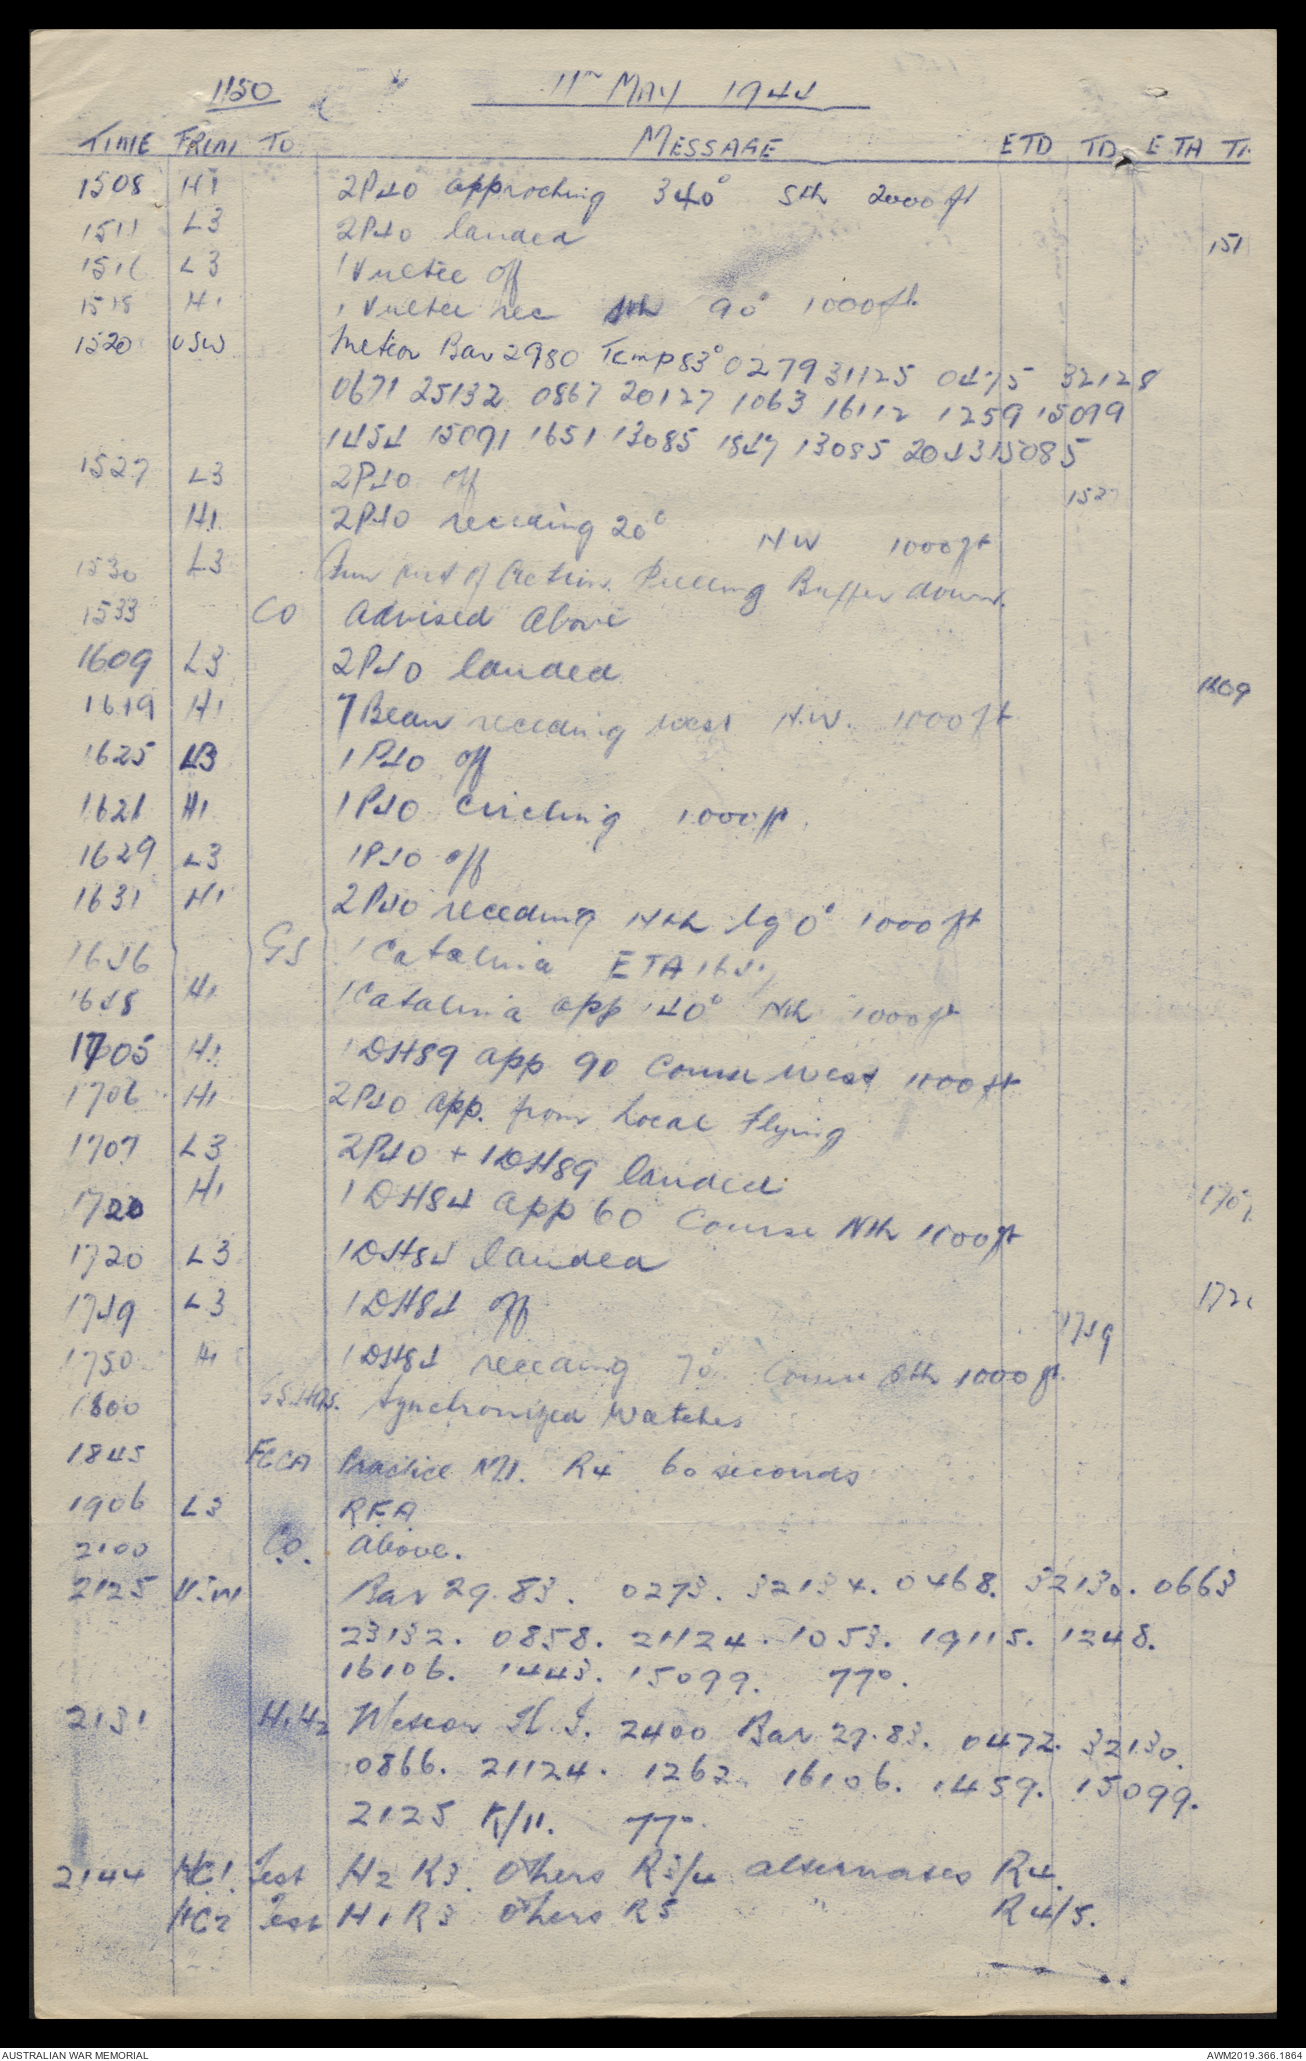 1150
11TH MAY 1944
TIME FROM TO MESSAGE ETD TD ETA TA
1508 H1 2P40 approching 340° Sth 2000 ft
1511 L3 2P40 landed 151
1516 L3 1 Vultee off
1518 H1 1 Vultee rec Nth 90° 1000ft
1520 USW Meteor Bar 2980 Temp 83° 0279 31125 0475 32128
0671 25132 0867 20127 1063 16112 1259 15099
1454 15091 1651 13085 1847 13085 2043 15085
1527 L3 2P40 off 1527
H1 2P40 receding 20° NW 1000ft
1530 L3 Gun out of Action. Pulling Buffer down.
1533 CO Advised Above
1609 L3 2P40 landed 1609
1619 H1 7 Beau receding west N.W. 1000 ft
1625 L3 1 P40 off
1621 H1 1P40 Circling 1000 ft.
1629 L3 1P40 off
1631 H1 2P40 receding Nth 0° 1000 ft
1646 GS 1 Catalina ETA
1648 H1 1 Catalina app 140° Nth 1000 ft
1705 H1 1 DH89 app 90 Course West 1000 ft
1706 H1 2P40 app. from Local Flying
1707 L3 2P40 + 1DH89 landed 1707
1720 H1 1 DH84 app 60 Course Nth 1000 ft
1720 L3 1DH84 landed 172
1749 L3 1DH84 off 1749
1750 H1 1DH84 receding 70° Course Sth 1000 ft.
1800 GS HQs. Synchronized Watches
1845 FCCA Practice M1. R4 60 seconds
1906 L3 R.F.A
2100 C.O. Above.
2125 Bar 29.83. 0273. 32134. 0468. 32130. 0663
23132. 0858. 21124. 1053. 19115. 1248.
16106. 1443. 15099. 77°.
2131 H1H2 Meteor 2400 Bar 29.83. 0472. 32130.
0866. 21124. 1262. 16106. 1459. 15099.
2125 K/11. 77°.
2144 HC1. Test H2 R3. Others R3/4 alternates R4.
HC2 Test H1 R3 Others R5 " R4/5.
AUSTRALIAN WAR MEMORIAL AWM2019.366.1864